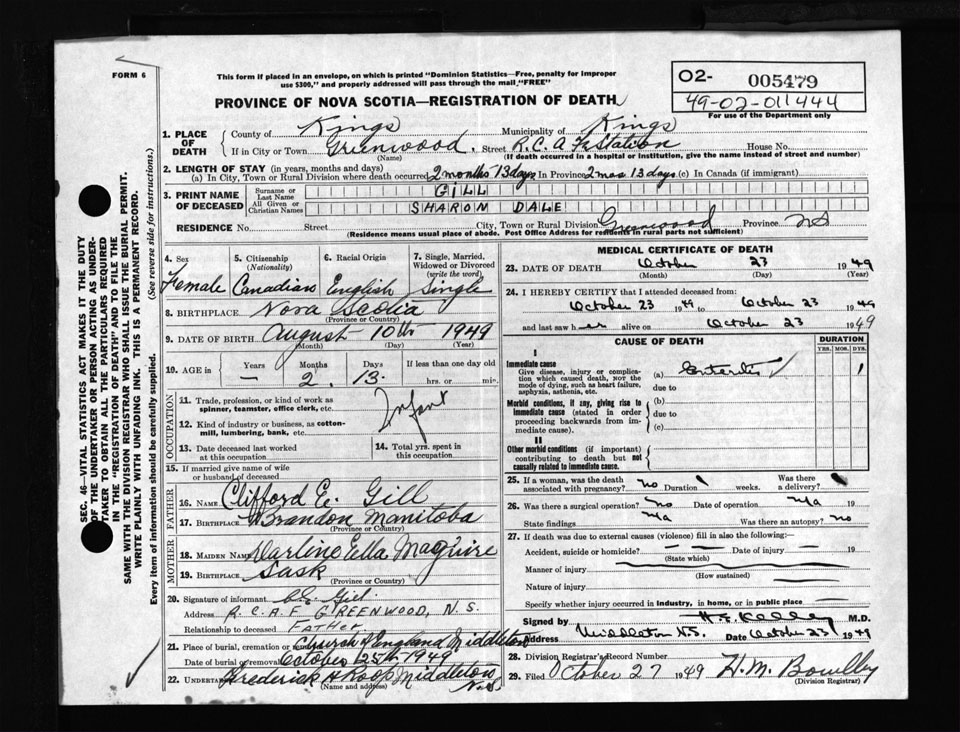 FORM 6
This form if placed in an envelope, on which is printed "Dominion Statistics—Free, penalty for improper
use $300," and properly addressed will pass through the mail "FREE"
PROVINCE OF NOVA SCOTIA—REGISTRATION OF DEATH
O2- 005479
49-02-011444
For use of the Department only
1. PLACE OF DEATH
County of Kings Municipality of Kings
If in City or Town Greenwood, Street R.C.A.F. Station House No.
(Name) (If death occurred in a hospital or institution, give the name instead of street and number)
2. LENGTH OF STAY (in years, months and days)
(a) In City, Town or Rural Division where death occurred 2 months 13 days In Province 2 mos 13 days (c) In Canada (if immigrant)
3. PRINT NAME OF DECEASED
Surname or Last Name GILL
All Given or Christian Names SHARON DALE
RESIDENCE No. Street City, Town or Rural Division Greenwood Province NS
(Residence means usual place of abode. Post Office Address for residents in rural parts not sufficient)
4. Sex Female
5. Citizenship (Nationality) Canadian
6. Racial Origin English
7. Single, Married, Widowed or Divorced (write the word) Single
8. BIRTHPLACE Nova Scotia
(Province or Country)
9. DATE OF BIRTH August 10th 1949
(Month) (Day) (Year)
10. AGE in Years — Months 2 Days 13 If less than one day old hrs. or min.
OCCUPATION
11. Trade, profession, or kind of work as spinner, teamster, office clerk, etc. Infant
12. Kind of industry or business, as cotton-mill, lumbering, bank, etc.
13. Date deceased last worked at this occupation
14. Total yrs. spent in this occupation
15. If married give name of wife or husband of deceased
FATHER
16. NAME Clifford E. Gill
17. BIRTHPLACE Brandon Manitoba
(Province or Country)
MOTHER
18. MAIDEN NAME Darline Ella Maguire
19. BIRTHPLACE Sask
(Province or Country)
20. Signature of informant CE Gill
Address R.C.A.F GREENWOOD, N.S.
Relationship to deceased FATHER
21. Place of burial, cremation or Church of England Middleton
Date of burial or removal October 25th 1949
22. UNDERTAKER Frederick A Roop Middleton N.S.
(Name and address)
MEDICAL CERTIFICATE OF DEATH
23. DATE OF DEATH October 23 1949
(Month) (Day) (Year)
24. I HEREBY CERTIFY that I attended deceased from:
October 23 1949 to October 23 1949
and last saw her alive on October 23 1949
CAUSE OF DEATH
DURATION
YRS. MOS. DYS.
I
Immediate cause
Give disease, injury or complication which caused death, NOT the mode of dying, such as heart failure, asphyxia, asthenia, etc.
(a) Enteritis 1
due to
Morbid conditions, if any, giving rise to immediate cause (stated in order proceeding backwards from immediate cause).
(b)
due to
(c)
II
Other morbid conditions (if important) contributing to death but not causally related to immediate cause.
25. If a woman, was the death associated with pregnancy? no Duration weeks. Was there a delivery?
26. Was there a surgical operation? no Date of operation n/a 19
State findings n/a Was there an autopsy? no
27. If death was due to external causes (violence) fill in also the following:—
Accident, suicide or homicide? Date of injury 19
(State which)
Manner of injury
(How sustained)
Nature of injury
Specify whether injury occurred in industry, in home, or in public place
Signed by H. E. Kelley M.D.
Address Middleton N.S. Date October 23 1949
28. Division Registrar's Record Number
29. Filed October 27 1949 H.M. Bowlby
(Division Registrar)
SEC. 46—VITAL STATISTICS ACT MAKES IT THE DUTY
OF THE UNDERTAKER OR PERSON ACTING AS UNDER-
TAKER TO OBTAIN ALL THE PARTICULARS REQUIRED
IN THE "REGISTRATION OF DEATH" AND TO FILE THE
SAME WITH THE DIVISION REGISTRAR WHO SHALL ISSUE THE BURIAL PERMIT.
WRITE PLAINLY WITH UNFADING INK. THIS IS A PERMANENT RECORD.
Every item of information should be carefully supplied. (See reverse side for instructions.)